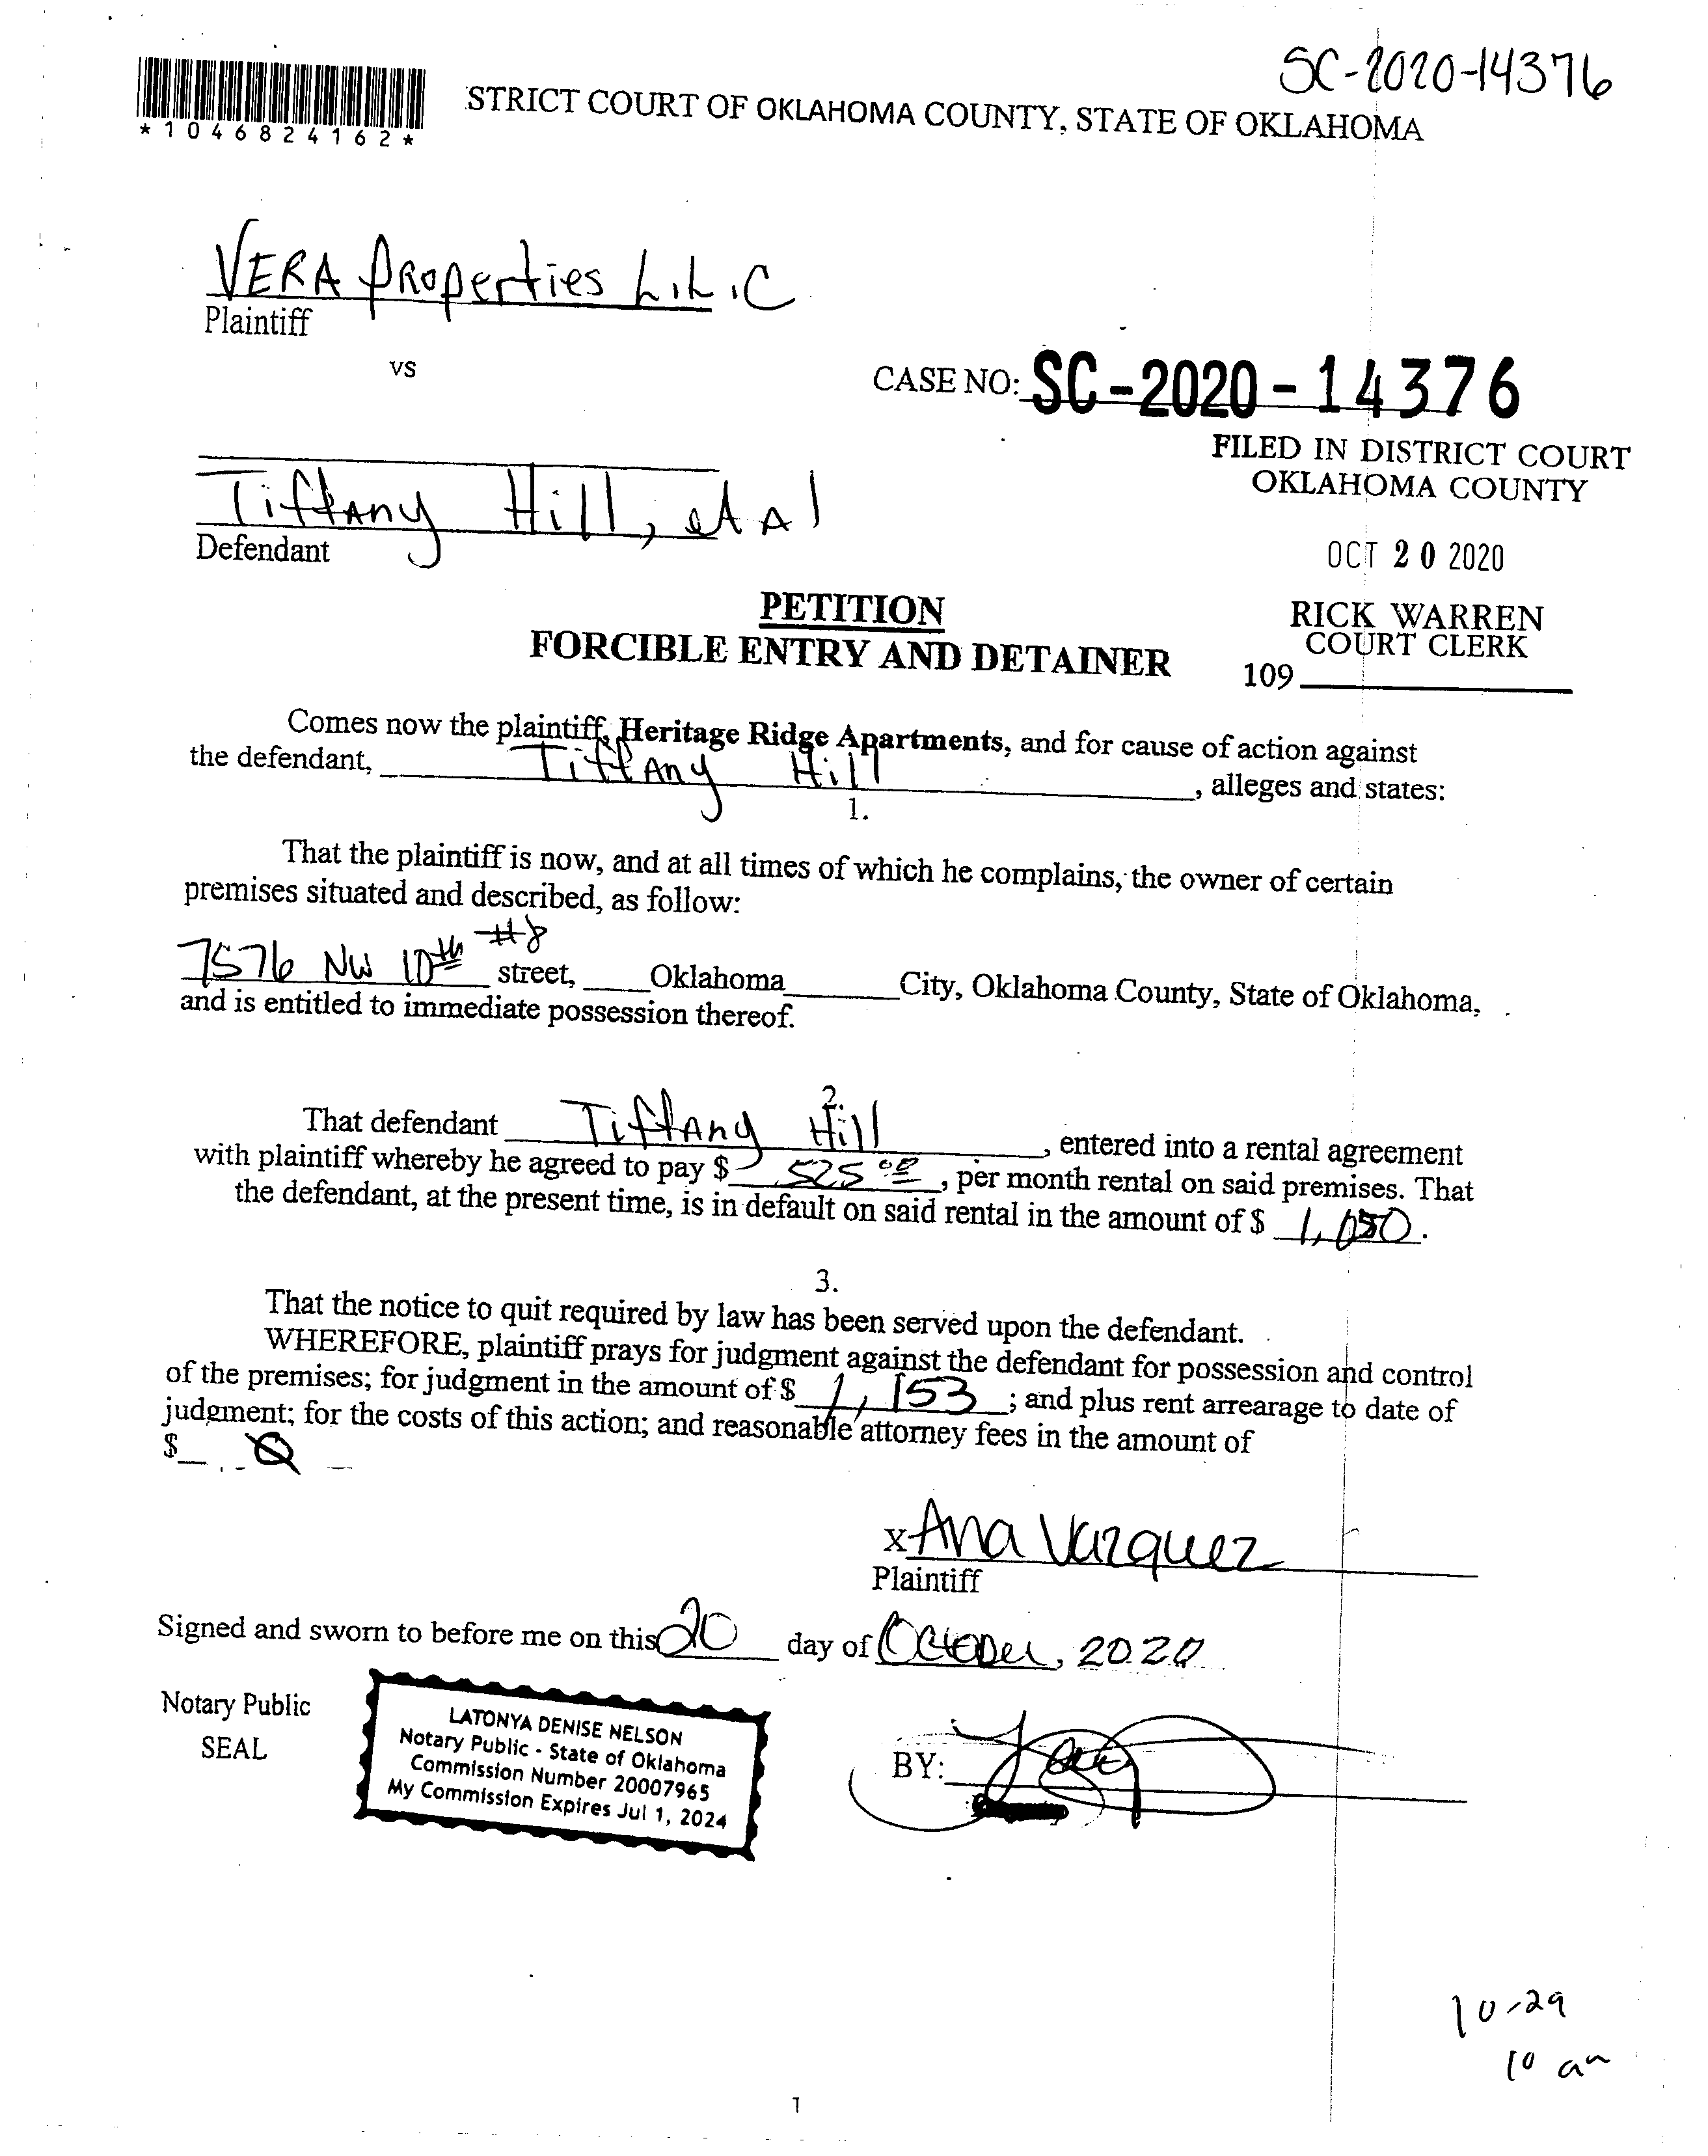 SC-2020-14376
*1046824162*
STRICT COURT OF OKLAHOMA COUNTY, STATE OF OKLAHOMA
VERA Properties L.L.C
Plaintiff
vs
CASE NO: SC-2020-14376
FILED IN DISTRICT COURT
OKLAHOMA COUNTY
Tiffany Hill, et al
Defendant
OCT 20 2020
PETITION
FORCIBLE ENTRY AND DETAINER
RICK WARREN
COURT CLERK
109
Comes now the plaintiff, Heritage Ridge Apartments, and for cause of action against
the defendant, Tiffany Hill, alleges and states:
1.
That the plaintiff is now, and at all times of which he complains, the owner of certain
premises situated and described, as follow:
7576 NW 10th #8 street, Oklahoma City, Oklahoma County, State of Oklahoma,
and is entitled to immediate possession thereof.
2.
That defendant Tiffany Hill, entered into a rental agreement
with plaintiff whereby he agreed to pay $ 525 00, per month rental on said premises. That
the defendant, at the present time, is in default on said rental in the amount of $ 1,050.
3.
That the notice to quit required by law has been served upon the defendant.
WHEREFORE, plaintiff prays for judgment against the defendant for possession and control
of the premises; for judgment in the amount of $ 1,153; and plus rent arrearage to date of
judgment; for the costs of this action; and reasonable attorney fees in the amount of
$ 0
x Ana Vazquez
Plaintiff
Signed and sworn to before me on this 20 day of October, 2020
Notary Public
SEAL
LATONYA DENISE NELSON
Notary Public - State of Oklahoma
Commission Number 20007965
My Commission Expires Jul 1, 2024
BY:
10-29
10 am
1